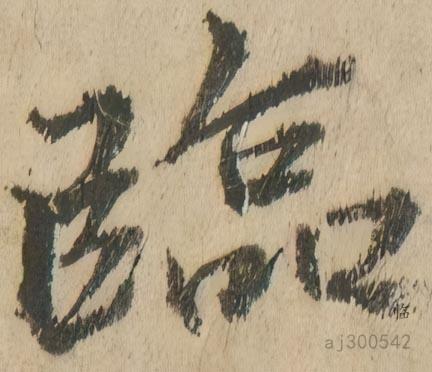 臨
aj300542